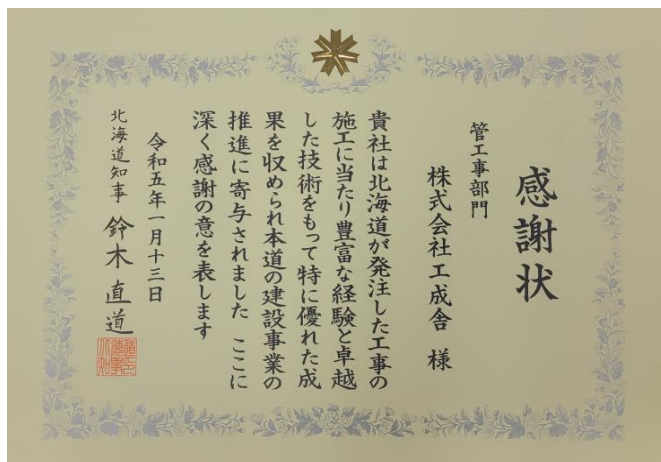 感謝状
管工事部門
株式会社工成舎 様
貴社は北海道が発注した工事の
施工に当たり豊富な経験と卓越
した技術をもって特に優れた成
果を収められ本道の建設事業の
推進に寄与されました ここに
深く感謝の意を表します
令和五年一月十三日
北海道知事 鈴木直道